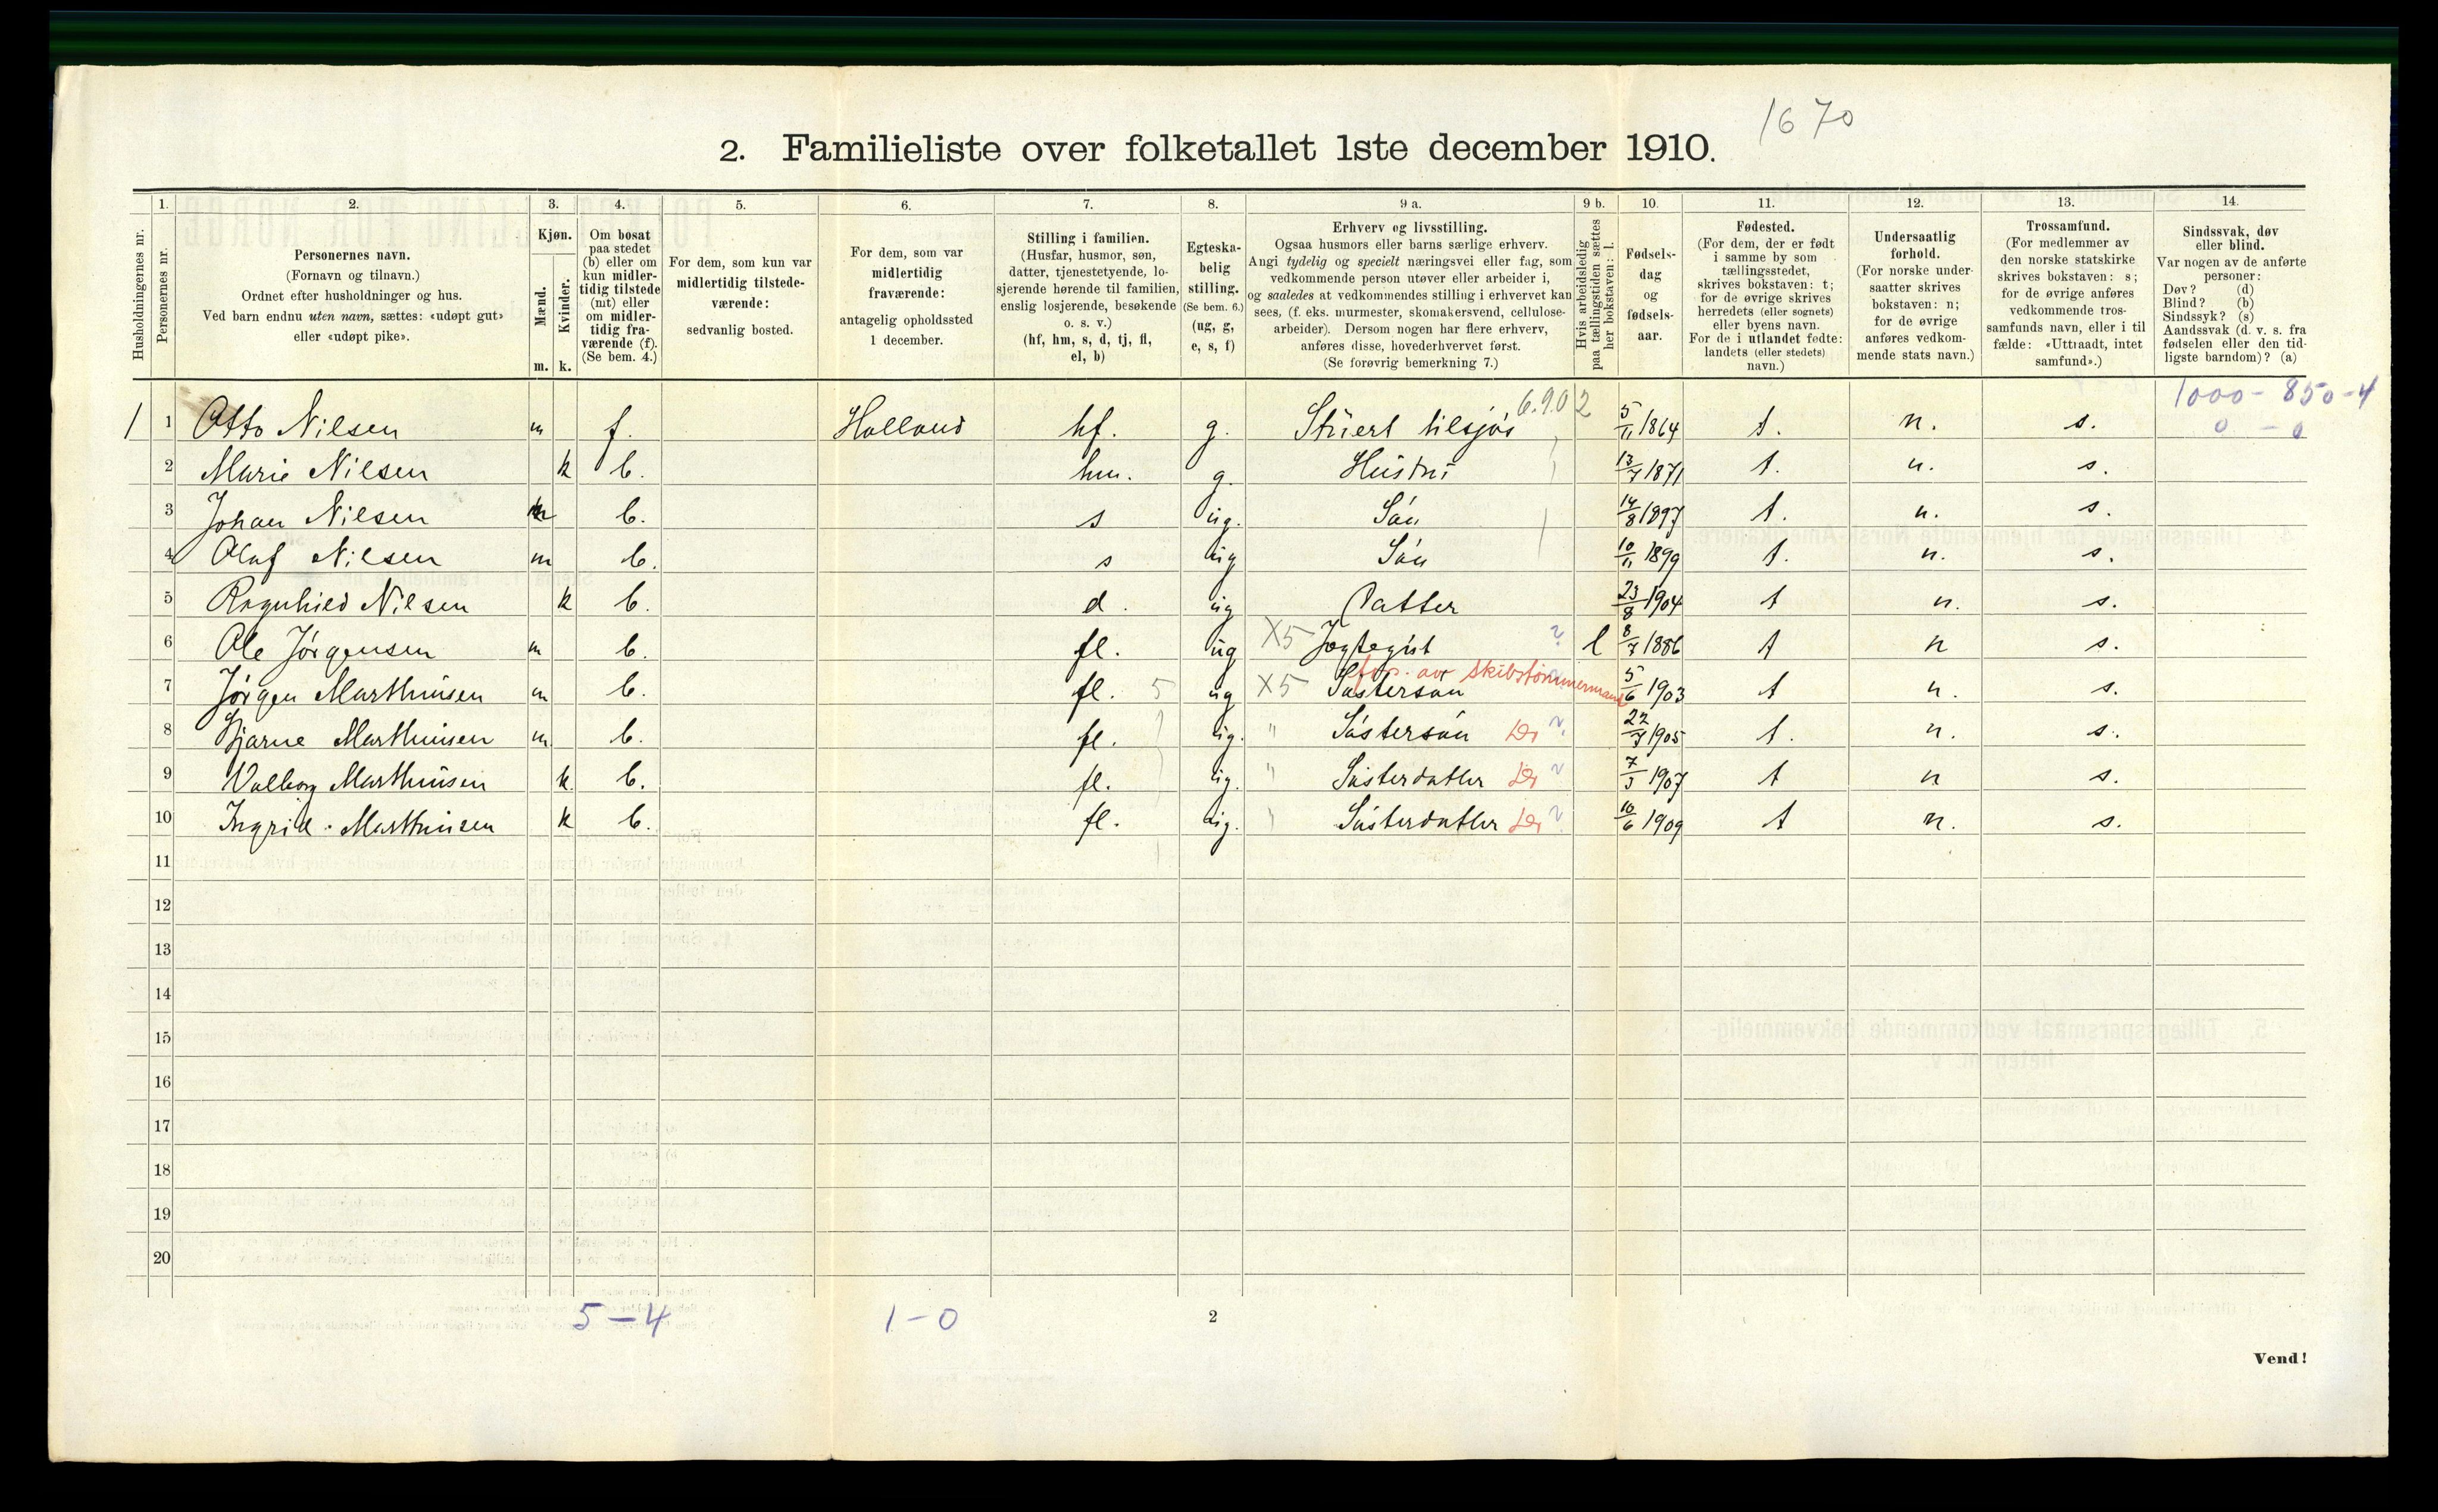 1670
2. Familieliste over folketallet 1ste december 1910.
Husholdningernes nr.
1.
Personernes nr.
2.
Personernes navn.
(Fornavn og tilnavn.)
Ordnet efter husholdninger og hus.
Ved barn endnu uten navn, sættes: «udøpt gut»
eller «udøpt pike».
3.
Kjøn.
Mænd.
Kvinder.
m. k.
4.
Om bosat
paa stedet
(b) eller om
kun midler-
tidig tilstede
(mt) eller
om midler-
tidig fra-
værende (f).
(Se bem. 4.)
5.
For dem, som kun var
midlertidig tilstede-
værende:
sedvanlig bosted.
6.
For dem, som var
midlertidig
fraværende:
antagelig opholdssted
1 december.
7.
Stilling i familien.
(Husfar, husmor, søn,
datter, tjenestetyende, lo-
sjerende hørende til familien,
enslig losjerende, besøkende
o. s. v.)
(hf, hm, s, d, tj, fl,
el, b)
8.
Egteska-
belig
stilling.
(Se bem. 6.)
(ug, g,
e, s, f)
9 a.
Erhverv og livsstilling.
Ogsaa husmors eller barns særlige erhverv.
Angi tydelig og specielt næringsvei eller fag, som
vedkommende person utøver eller arbeider i,
og saaledes at vedkommendes stilling i erhvervet kan
sees, (f. eks. murmester, skomakersvend, cellulose-
arbeider). Dersom nogen har flere erhverv,
anføres disse, hovederhvervet først.
(Se forøvrig bemerkning 7.)
9 b.
Hvis arbeidsledig
paa tællingstiden sættes
her bokstaven: l.
10.
Fødsels-
dag
og
fødsels-
aar.
11.
Fødested.
(For dem, der er født
i samme by som
tællingsstedet,
skrives bokstaven: t;
for de øvrige skrives
herredets (eller sognets)
eller byens navn.
For de i utlandet fødte:
landets (eller stedets)
navn.)
12.
Undersaatlig
forhold.
(For norske under-
saatter skrives
bokstaven: n;
for de øvrige
anføres vedkom-
mende stats navn.)
13.
Trossamfund.
(For medlemmer av
den norske statskirke
skrives bokstaven: s;
for de øvrige anføres
vedkommende tros-
samfunds navn, eller i til
fælde: «Uttraadt, intet
samfund».)
14.
Sindssvak, døv
eller blind.
Var nogen av de anførte
personer:
Døv? (d)
Blind? (b)
Sindssyk? (s)
Aandssvak (d. v. s. fra
fødselen eller den tid-
ligste barndom)? (a)
6.902 1000-850-4
1 1 Otto Nilsen m f. Holland hf. g. Stüert tilsjøs 5/11 1864 t. n. s. 0-0
2 Marie Nilsen k b. hm. g. Hustru 13/7 1871 t. n. s.
3 Johan Nilsen m b. s ug. Søn 14/8 1897 t. n. s.
4 Olaf Nilsen m b. s ug Søn 10/11 1899 t. n. s.
5 Ragnhild Nilsen k b. d. ug Datter 23/8 1904 t n. s.
6 Ole Jørgensen m b. fl. ug X5 Jægtegut ? l 8/7 1886 t n s.
fors. av skibstømmermand
7 Jørgen Marthinsen m b. fl. 5 ug X5 Søstersøn 5/6 1903 t n. s.
8 Bjarne Marthinsen m b. fl. ug. " Søstersøn Do ? 22/7 1905 t. n. s.
9 Valborg Marthinsen k. b. fl. ug. " Søsterdatter Do ? 7/3 1907 t n s.
10 Ingrid Marthinsen k b. fl. ug. " Søsterdatter Do ? 10/6 1909 t n. s.
11
12
13
14
15
16
17
18
19
20
5-4 1-0 2
Vend!